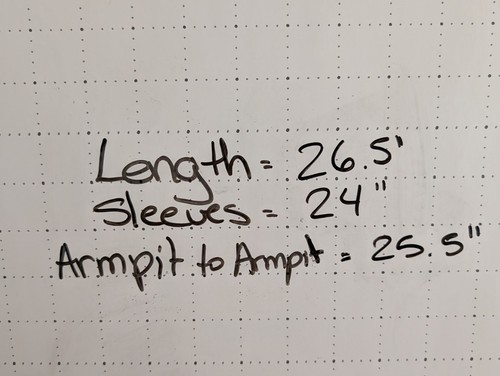 Length = 26.5'
Sleeves = 24"
Armpit to Ampit = 25.5"